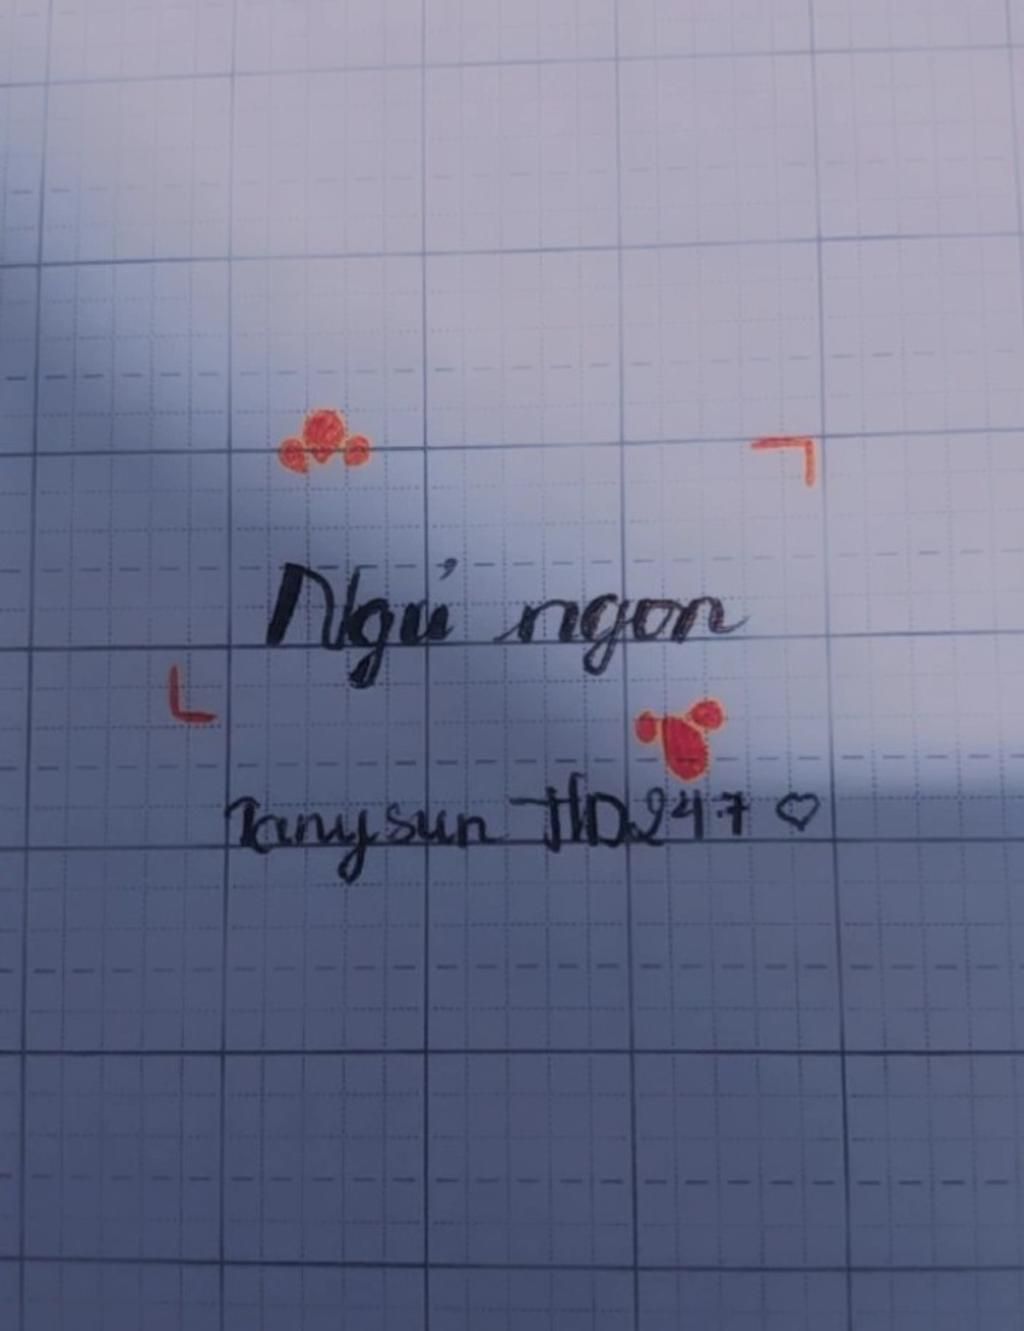 Ngủ ngon
Tanysun THD247 ♡